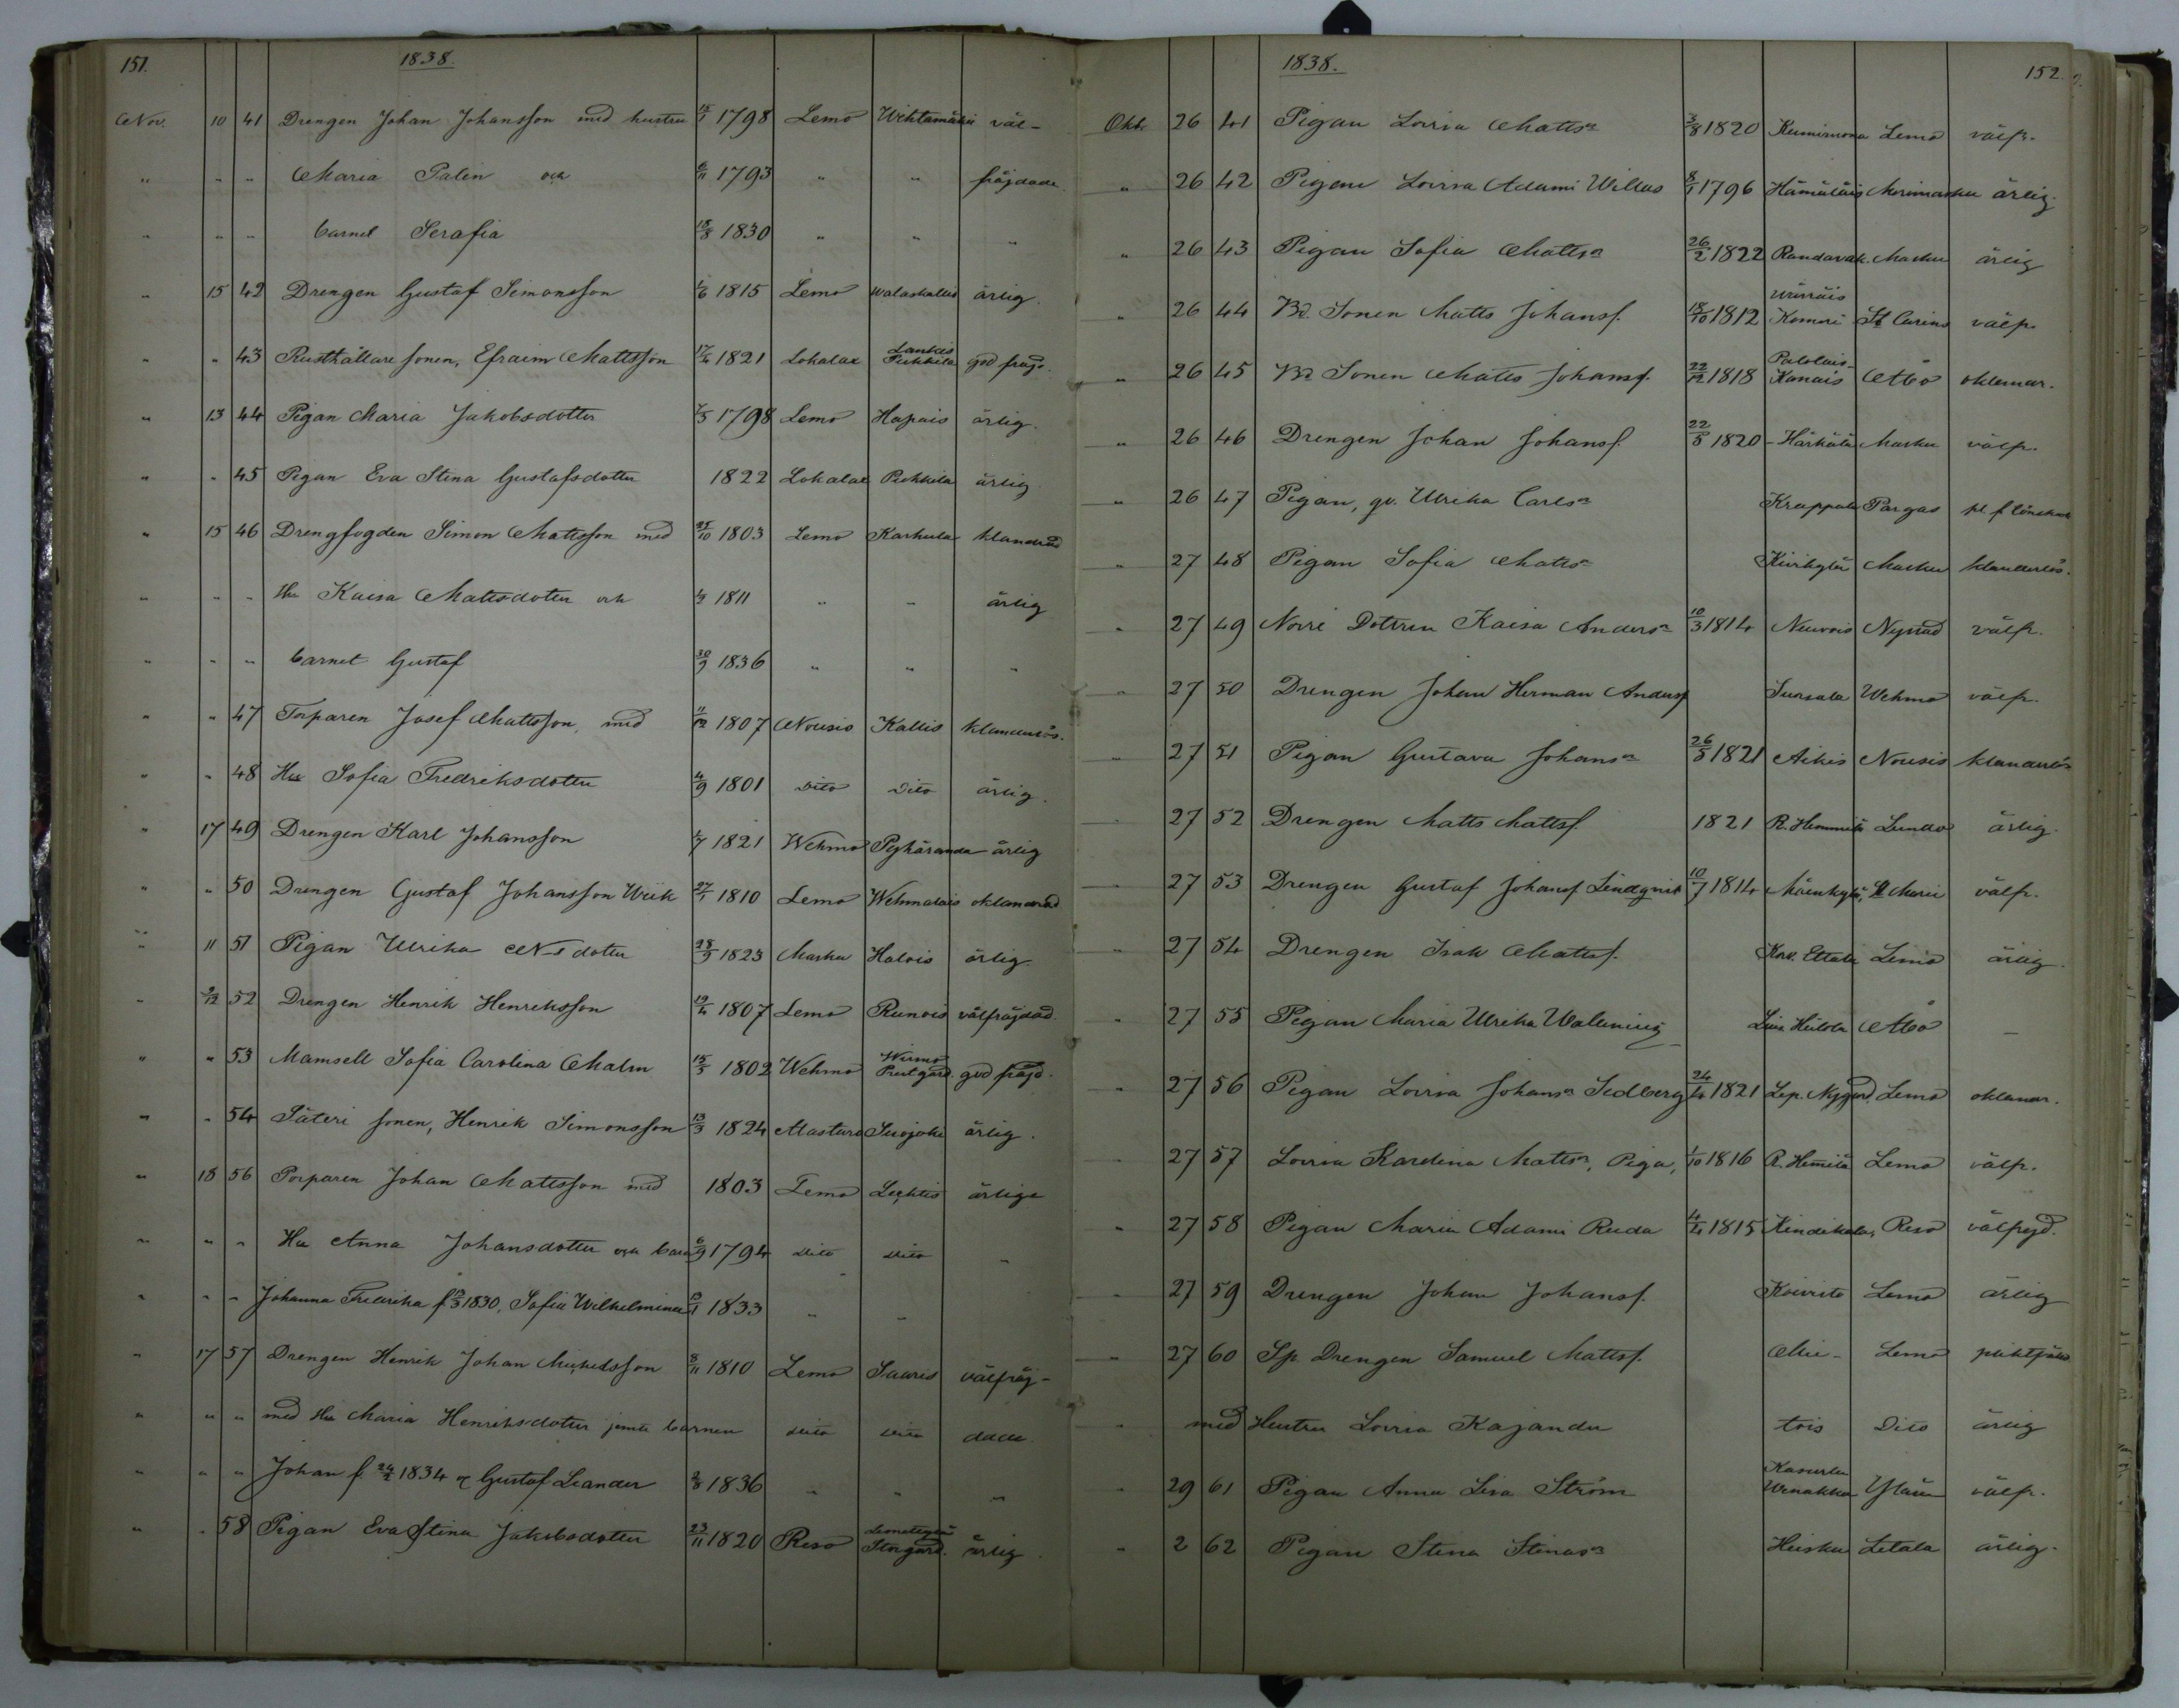 151. 1838.
Nov. 10 41 Drengen Johan Johansson med hustru 15/1 1798 Lemo Wihtamäki väl-
" " " Maria Palin och 6/11 1793 " " fräjdade.
" " " barnet Serafia 18/8 1830 " " "
" 15 42 Drengen Gustaf Simonsson 1815 Lemo ärlig.
" " 43 Rusthållare sonen, Efraim Mattsson 17/4 1821 Lokalax Pukkila god fräjd.
" 13 44 Pigan Maria Jakobsdotter 1798 Lemo Hapais ärlig.
" " 45 Pigan Eva Stina Gustafsdotter 1822 Lokalax Pukkila ärlig
" 15 46 Drengfogden Simon Mattsson med 25/10 1803 Lemo Karhula
" " " Hu Kaisa Mattsdotter och 1811 " " ärlig
" " " barnet Gustaf 30/9 1836 " " "
" " 47 Torparen Josef Mattsson, med 11/12 1807 Nousis Kallis klanderlös.
" " 48 Hu Sofia Fredriksdotter 4/9 1801 dito dito ärlig.
" 17 49 Drengen Karl Johansson 1821 Wehmo Pyhäranda ärlig
" " 50 Drengen Gustaf Johansson Wiik 27/1 1810 Lemo Wehmalais oklandrad
" 11 51 Pigan Ulrika N-s dotter 1823 Masku Halois ärlig.
" 9/12 52 Drengen Henrik Henriksson 19/4 1807 Lemo Runois välfräjdad.
" " 53 Mamsell Sofia Carolina Malm 15/5 1802 Wehmo Wirmo Prestgård. god fräjd.
" " 54 Säteri sonen, Henrik Simonsson 13/3 1824 Masku Suojoki ärlig.
" 18 56 Torparen Johan Mattsson med 1803 Lemo Leghtis ärlige
" " " Hu Anna Johansdotter och barn 6/9 1794 dito dito "
" " " Johanna Fredrika f. 1830, Sofia Wilhelmina 1833 " "
" 17 57 Drengen Henrik Johan Michelsson 8/11 1810 Lemo Sauris välfräj-
" " " med Hu Maria Henriksdotter jemte barnen dito dito dade.
" " " Johan f. 24/2 1834 & Gustaf Leander 2/8 1836 " " "
" " 58 Pigan Eva Stina Jakobsdotter 23/11 1820 Reso Storgård. ärlig.
1838. 152.
Oktb. 26 41 Pigan Lovisa Matts⸗ 3/8 1820 Lemo välfr.
" 26 42 Pigan Lovisa Adami Willas 8/1 1796 Hämäläis Merimasku ärlig.
" 26 43 Pigan Sofia Matts⸗ 26/2 1822 Randavak. Masku ärlig
" 26 44 Bd. Sonen Matts Johansf. 18/10 1812 Komari St Carins välfr.
" 26 45 Bd Sonen Matts Johansf. 22/12 1818 Kanais Åbo oklandr.
" 26 46 Drengen Johan Johansf. 22/5 1820 Härkälä Masku välfr.
" 26 47 Pigan, gv. Ulrika Carls⸗ Pargas
" 27 48 Pigan Sofia Matts⸗ Kiirikylä Masku klanderlös.
" 27 49 Norri Dottren Kaisa Anders⸗ 10/3 1814 Neuvois Nystad välfr.
" 27 50 Drengen Johan Herman Andersf Sursala Wehmo välfr.
" 27 51 Pigan Gustava Johans⸗ 26/3 1821 Aikis Nousis klanderlös
" 27 52 Drengen Matts Mattsf. 1821 R. Himmilä Lundo ärlig.
" 27 53 Drengen Gustaf Johansf. Lindqvist 10/7 1814 Mäenkylä, St Marie välfr.
" 27 54 Drengen Isak Mattsf. Lemo ärlig.
" 27 55 Pigan Maria Ulrika Walenius Åbo —
" 27 56 Pigan Lovisa Johans⸗ Sedberg 24/4 1821 Lep. Nygård Lemo oklandr.
" 27 57 Lovisa Karolina Matts⸗, Piga, 1/10 1816 R. Himilä Lemo välfr.
" 27 58 Pigan Maria Adami Ruda 4/4 1815 Reso välfrejd.
" 27 59 Drengen Johan Johansf. Koivisto Lemo ärlig
" 27 60 Sp. Drengen Samuel Mattsf. Mie- Lemo
" med Hustru Lovisa Kajander tois Dito ärlig
" 29 61 Pigan Anna Lisa Ström Yläne välfr.
" 2 62 Pigan Stina Stinas⸗ Heisku Letala ärlig.